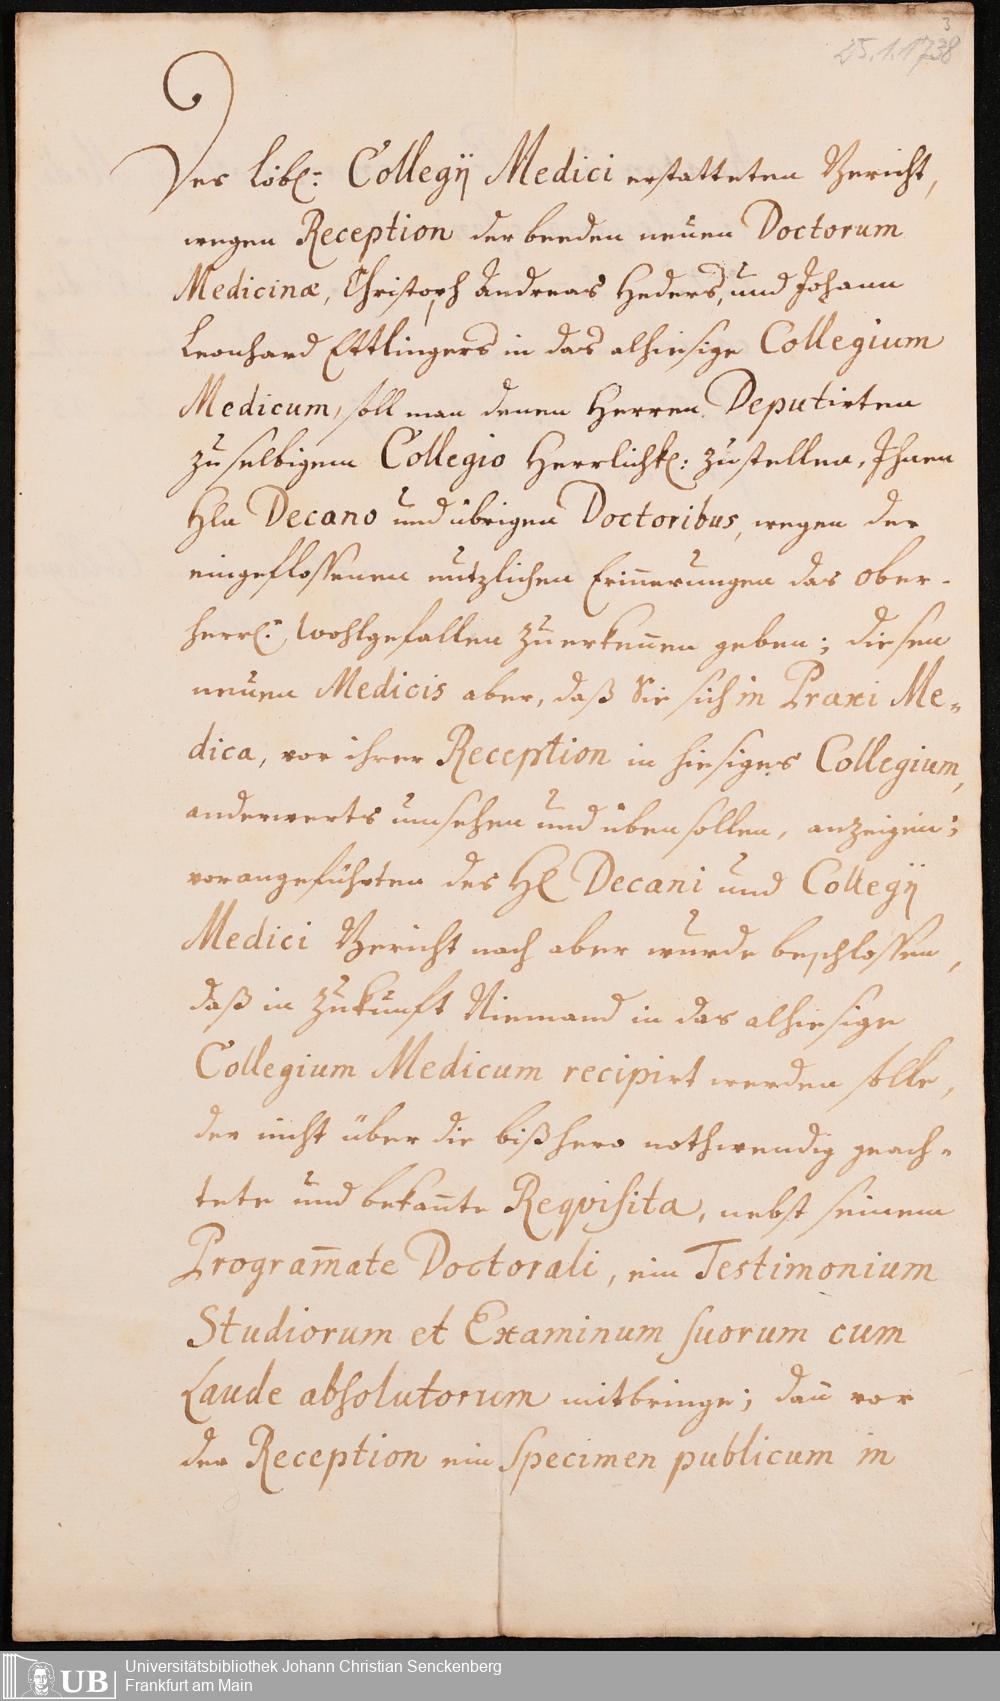 3
25.1.1738
Des Löbl: Collegÿ Medici erstatteten Bericht,
wegen Reception der beeden neuen Doctorum
Medicinæ, Christoph Andreas Heders, und Johann
Leonhard Ettlingers in das alhiesige Collegium
Medicum, soll man denen Herren Deputirten
zu selbigem Collegio Herrlichk: zustellen, Ihnen
Hln Decano und übrigen Doctoribus, wegen der
eingeflossenen nützlichen Erin̄erungen das Ober-
herrl: Wohlgefallen zuerken̄en geben; diesen
neuen Medicis aber, daß Sie sich in Praxi Me-
dica, vor ihrer Reception in hiesiges Collegium,
anderwerts umsehen und üben sollen, anzeigen;
vorangeführten des Hl Decani und Collegÿ
Medici Bericht nach aber wurde beschlossen,
daß in Zukunft Niemand in das alhiesige
Collegium Medicum recipirt werden solle,
der nicht über die bißhero nothwendig geach-
tete und bekan̄te Reqvisita, nebst seinem
Program̄ate Doctorali, ein Testimonium
Studiorum et Examinum suorum cum
Laude absolutorum mitbringe; dan̄ vor
der Reception ein Specimen publicum in
UB
Universitätsbibliothek Johann Christian Senckenberg
Frankfurt am Main